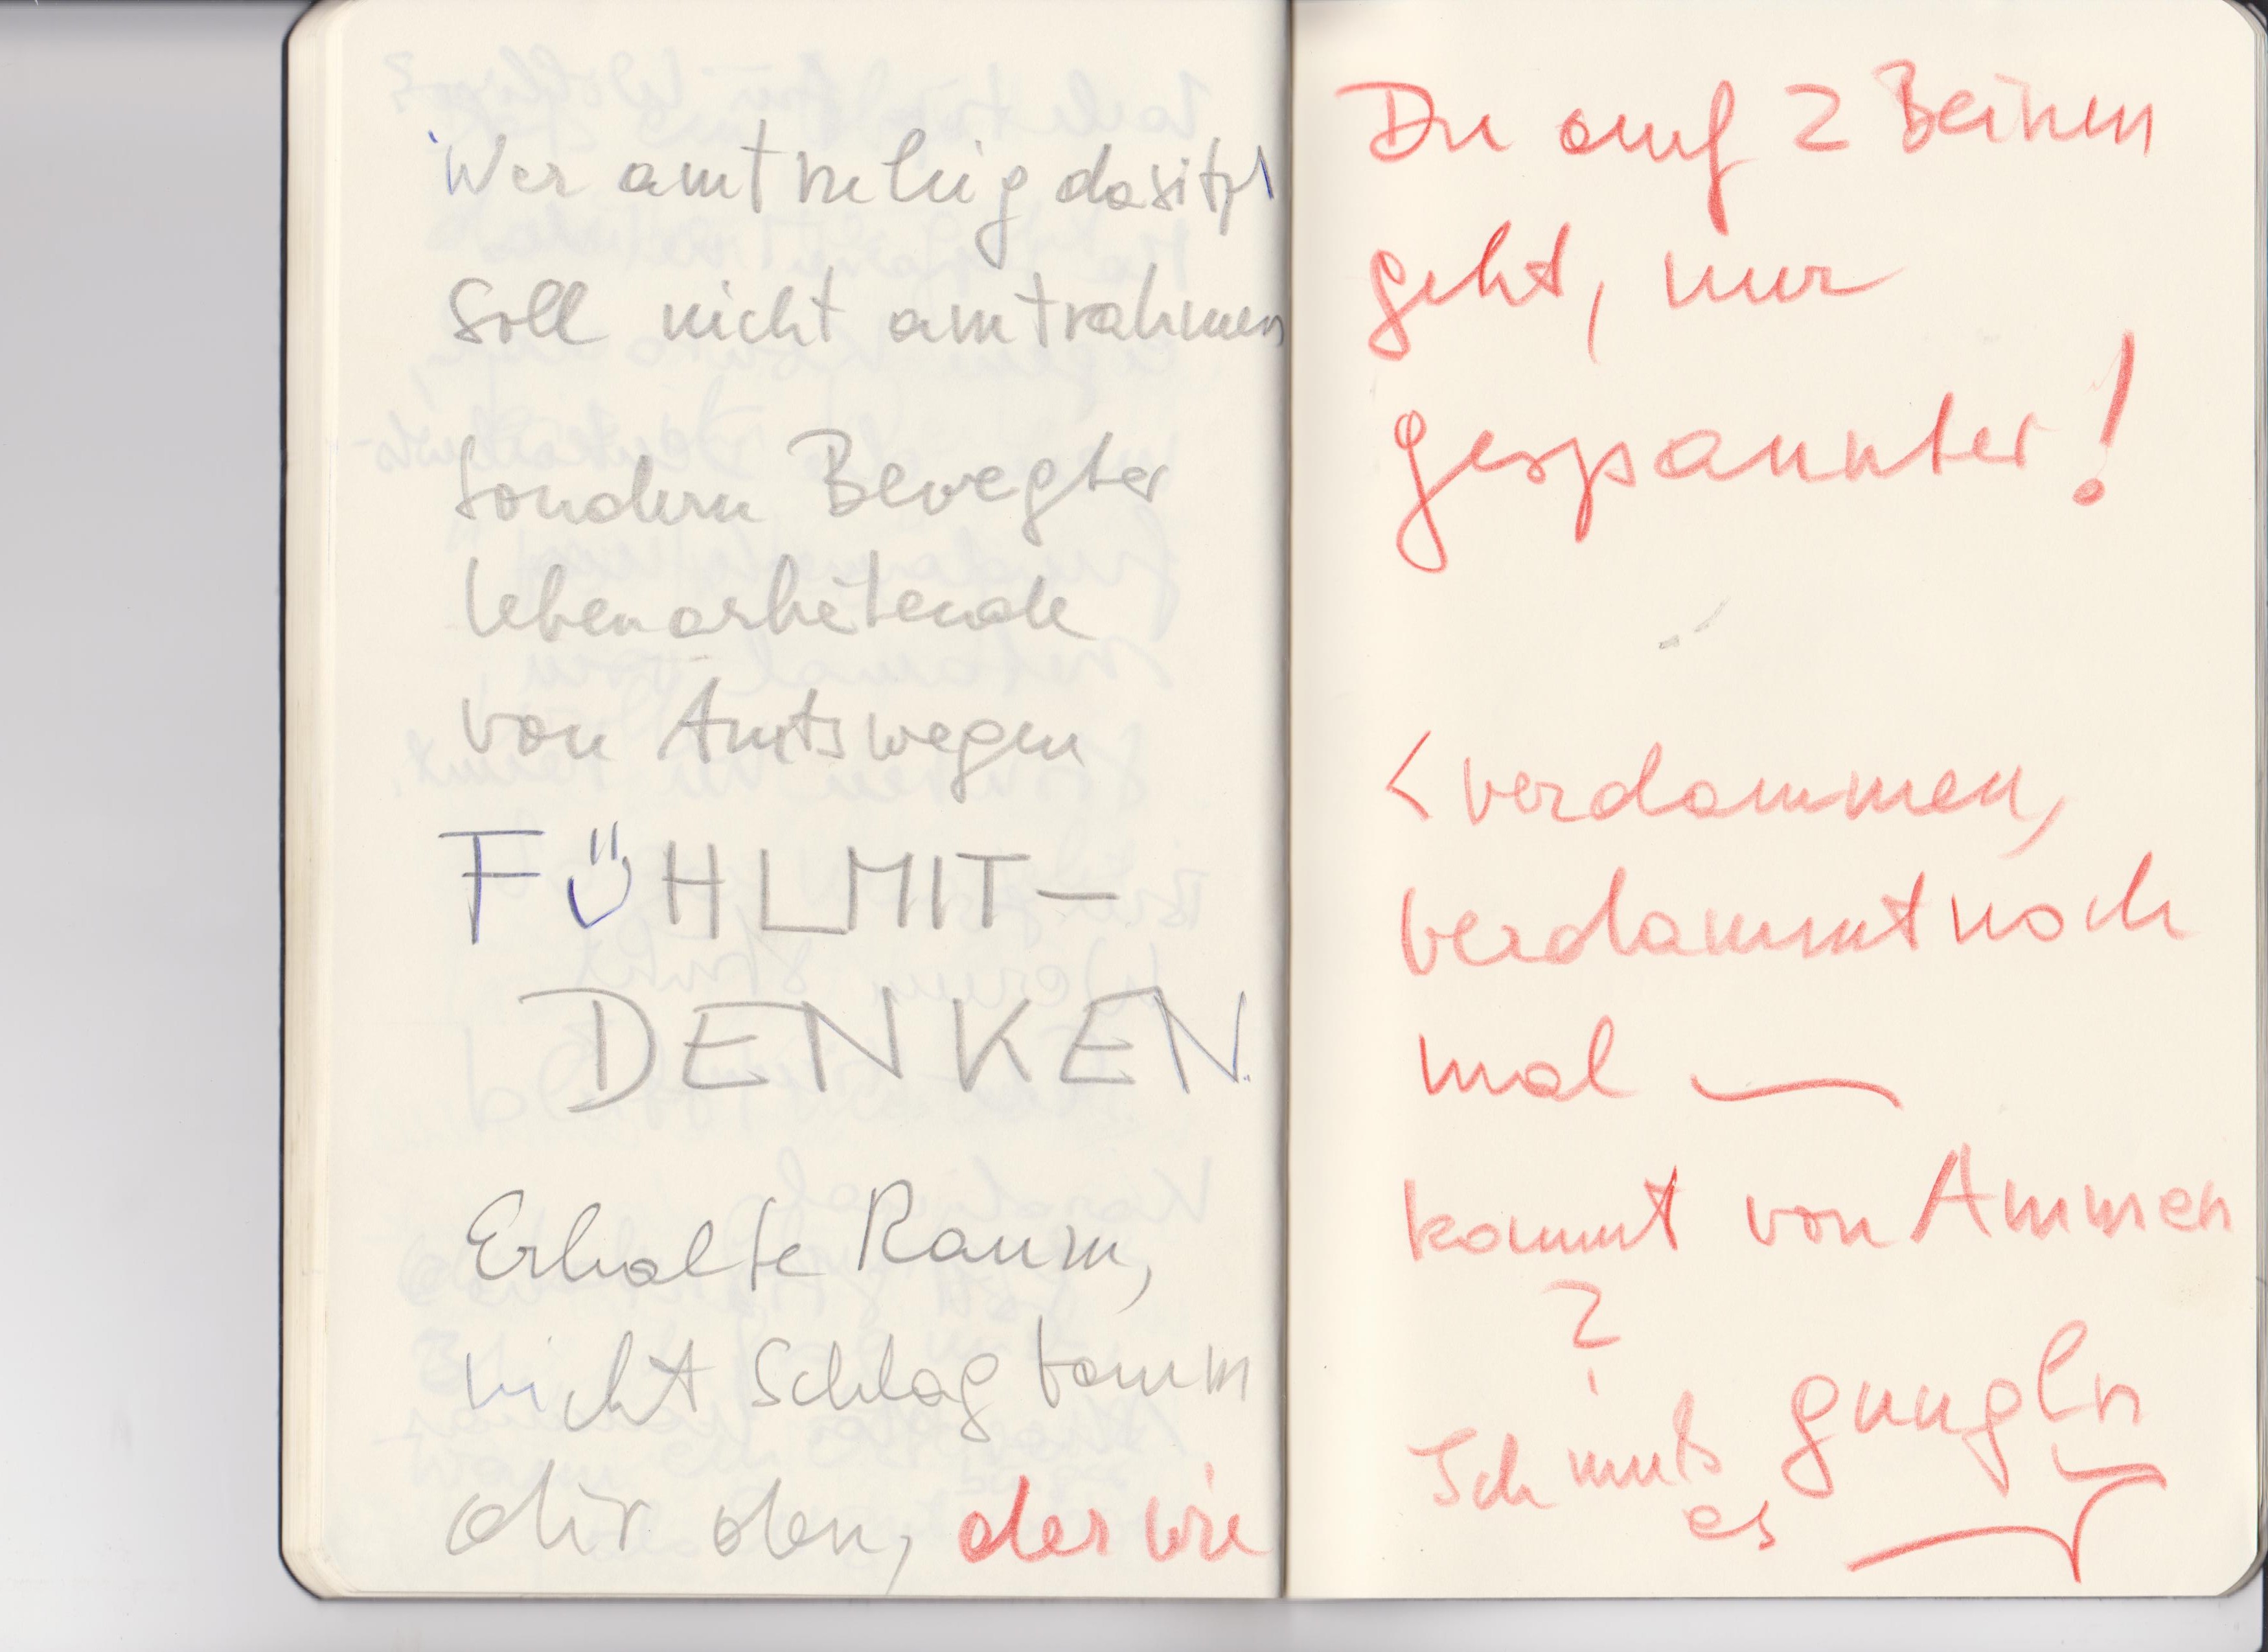 Wer amt ruhig dasitzt
Soll nicht amtrahmen
sondern Bewegter
lebenarbeitende
von Amts wegen
FÜHLMIT–
DENKEN.
Erhalte Raum,
nicht Schlag
dir den, der wie
Du auf 2 Beinen
geht, nur
gespannter!
< verdammen,
verdammt noch
mal —
kommt von Ammen
?
Ich muß guugln
es